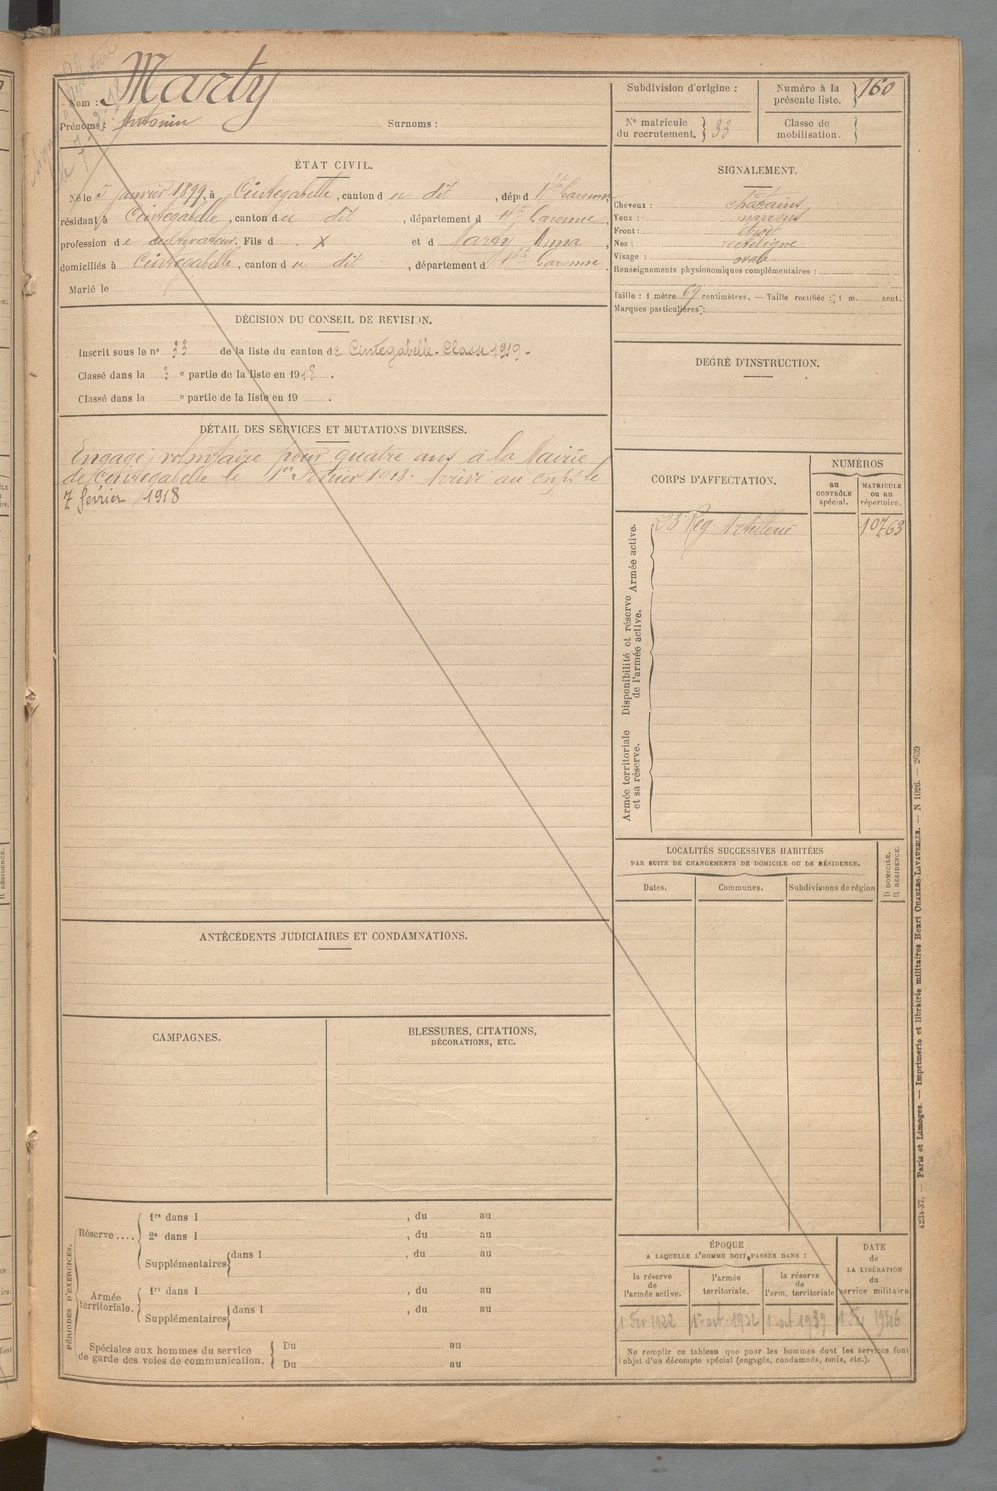 Nom : Marty
Prénoms : Antonin Surnoms :
Subdivision d'origine :
Numéro à la présente liste. 160
N° matricule du recrutement. 33
Classe de mobilisation.
ÉTAT CIVIL.
Né le 5 janvier 1899, à Cintegabelle, canton du dit, dép d Hte Garonne
résidant à Cintegabelle, canton du dit, département d Hte Garonne,
profession de cultivateur. Fils d X et d Marty Anna,
domiciliés à Cintegabelle, canton du dit, département d Hte Garonne
Marié le
SIGNALEMENT.
Cheveux : châtains
Yeux : marrons
Front : étroit
Nez : rectiligne
Visage : ovale
Renseignements physionomiques complémentaires :
Taille : 1 mètre 69 centimètres. — Taille rectifiée : 1 m. cent.
Marques particulières :
DÉCISION DU CONSEIL DE REVISION.
Inscrit sous le n° 33 de la liste du canton de Cintegabelle - Classe 1919 -
Classé dans la 3 e partie de la liste en 1918.
Classé dans la e partie de la liste en 19 .
DEGRÉ D'INSTRUCTION.
DÉTAIL DES SERVICES ET MUTATIONS DIVERSES.
Engagé volontaire pour quatre ans à la Mairie
de Cintegabelle le 1er Février 1918. Arrivé au corps le
7 février 1918
CORPS D'AFFECTATION.
NUMÉROS
au CONTRÔLE spécial.
MATRICULE ou au répertoire.
Armée active.
23e Rég Artillerie 10763
Disponibilité et réserve de l'armée active.
Armée territoriale et sa réserve.
LOCALITÉS SUCCESSIVES HABITÉES
PAR SUITE DE CHANGEMENTS DE DOMICILE OU DE RÉSIDENCE.
Dates. Communes. Subdivisions de région
D DOMICILE.
R RÉSIDENCE.
ANTÉCÉDENTS JUDICIAIRES ET CONDAMNATIONS.
CAMPAGNES.
BLESSURES, CITATIONS,
DÉCORATIONS, ETC.
PÉRIODES D'EXERCICES.
Réserve....
1re dans l , du au
2e dans l , du au
Supplémentaires dans l , du au
Armée territoriale.
1re dans l , du au
Supplémentaires dans l , du au
Spéciales aux hommes du service
de garde des voies de communication.
Du au
Du au
ÉPOQUE
A LAQUELLE L'HOMME DOIT PASSER DANS :
la réserve de l'armée active.
l'armée territoriale.
la réserve de l'arm. territoriale
DATE de LA LIBÉRATION du service militaire
1 Fév 1922 1er oct 1932 1 oct 1939 1 Fév 1946
Ne remplir ce tableau que pour les hommes dont les services font
l'objet d'un décompte spécial (engagés, condamnés, omis, etc.).
4234-37. — Paris et Limoges. — Imprimerie et librairie militaires Henri CHARLES-LAVAUZELLE. — N 1026. — 2639